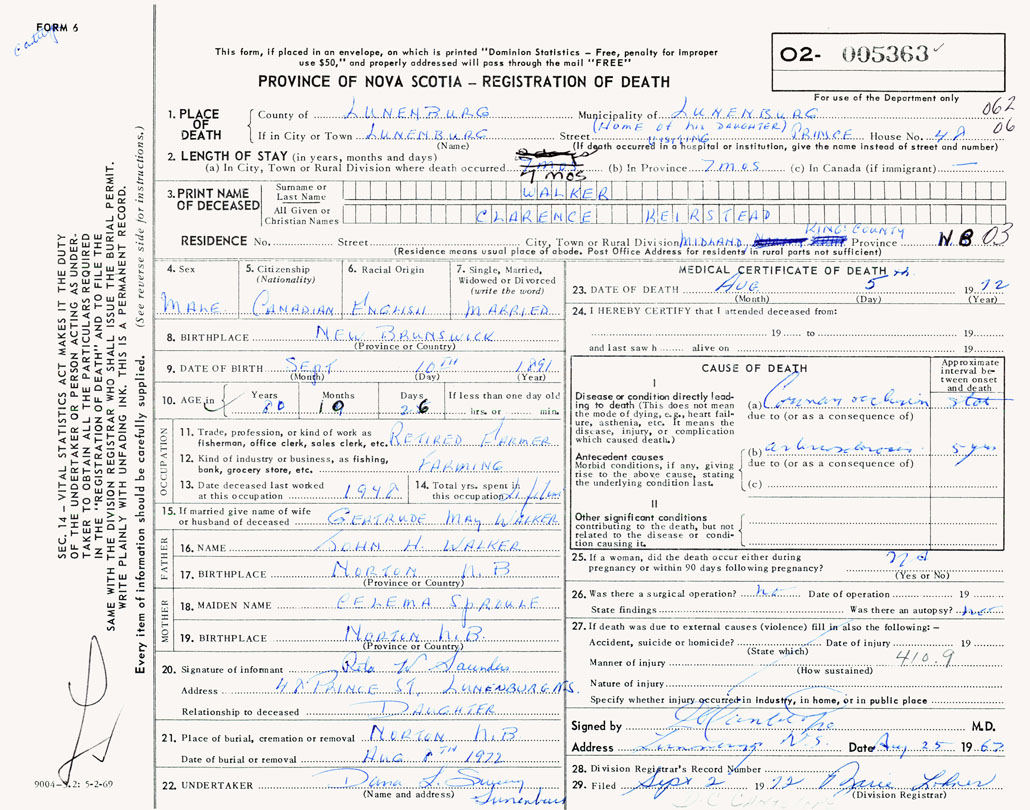 FORM 6
This form, if placed in an envelope, on which is printed "Dominion Statistics – Free, penalty for improper
use $50," and properly addressed will pass through the mail "FREE"
PROVINCE OF NOVA SCOTIA – REGISTRATION OF DEATH
02- 005363
For use of the Department only
062
06
1. PLACE OF DEATH
County of LUNENBURG Municipality of LUNENBURG
(HOME OF HIS DAUGHTER)
If in City or Town LUNENBURG Street PRINCE House No. 48
(Name) (If death occurred in a hospital or institution, give the name instead of street and number)
2. LENGTH OF STAY (in years, months and days)
(a) In City, Town or Rural Division where death occurred 7 mos (b) In Province 7 mos (c) In Canada (if immigrant) —
3. PRINT NAME OF DECEASED
Surname or Last Name WALKER
All Given or Christian Names CLARENCE KEIRSTEAD
RESIDENCE No. Street City, Town or Rural Division MIDLAND, KING COUNTY Province N B 03
(Residence means usual place of abode. Post Office Address for residents in rural parts not sufficient)
4. Sex MALE
5. Citizenship (Nationality) CANADIAN
6. Racial Origin ENGLISH
7. Single, Married, Widowed or Divorced (write the word) MARRIED
8. BIRTHPLACE NEW BRUNSWICK
(Province or Country)
9. DATE OF BIRTH SEPT 10TH 1891
(Month) (Day) (Year)
10. AGE in Years 80 Months 10 Days 26 If less than one day old
hrs. or min.
OCCUPATION
11. Trade, profession, or kind of work as
fisherman, office clerk, sales clerk, etc. RETIRED FARMER
12. Kind of industry or business, as fishing,
bank, grocery store, etc. FARMING
13. Date deceased last worked
at this occupation 1948
14. Total yrs. spent in
this occupation
15. If married give name of wife
or husband of deceased GERTRUDE MAY WALKER
FATHER
16. NAME JOHN H. WALKER
17. BIRTHPLACE NORTON N.B
(Province or Country)
MOTHER
18. MAIDEN NAME CELEMA SPROULE
19. BIRTHPLACE NORTON N.B.
(Province or Country)
20. Signature of informant W Saunders
Address 48 PRINCE ST, LUNENBURG N.S.
Relationship to deceased DAUGHTER
21. Place of burial, cremation or removal NORTON N.B
Date of burial or removal AUG 8TH 1972
22. UNDERTAKER Dana L. Sweny
(Name and address) Lunenburg
MEDICAL CERTIFICATE OF DEATH
23. DATE OF DEATH AUG 5 1972
(Month) (Day) (Year)
24. I HEREBY CERTIFY that I attended deceased from:
19 to 19
and last saw h alive on 19
CAUSE OF DEATH
Approximate interval between onset and death
I
Disease or condition directly leading to death (This does not
the mode of dying, e.g., heart failure, asthenia, etc. It means the
disease, injury, or complication
which caused death.)
(a) Coronary occlusion stat
due to (or as a consequence of)
Antecedent causes
Morbid conditions, if any, giving
rise to the above cause, stating
the underlying condition last.
(b) arteriosclerosis 5 yrs
due to (or as a consequence of)
(c)
II
Other significant conditions
contributing to the death, but not
related to the disease or condition causing it.
25. If a woman, did the death occur either during
pregnancy or within 90 days following pregnancy? no
(Yes or No)
26. Was there a surgical operation? no Date of operation 19
State findings Was there an autopsy? no
27. If death was due to external causes (violence) fill in also the following: –
Accident, suicide or homicide? Date of injury 19
(State which)
410.9
Manner of injury
(How sustained)
Nature of injury
Specify whether injury occurred in industry, in home, or in public place
Signed by M.D.
Address Lunenburg N.S. Date Aug 25 19
28. Division Registrar's Record Number
29. Filed Sept 2 1972
(Division Registrar)
SEC. 14 – VITAL STATISTICS ACT MAKES IT THE DUTY
OF THE UNDERTAKER OR PERSON ACTING AS UNDER-
TAKER TO OBTAIN ALL THE PARTICULARS REQUIRED
IN THE "REGISTRATION OF DEATH" AND TO FILE THE
SAME WITH THE DIVISION REGISTRAR WHO SHALL ISSUE THE BURIAL PERMIT.
WRITE PLAINLY WITH UNFADING INK. THIS IS A PERMANENT RECORD.
Every item of information should be carefully supplied. (See reverse side for instructions.)
9004-S.2: 5-2-69